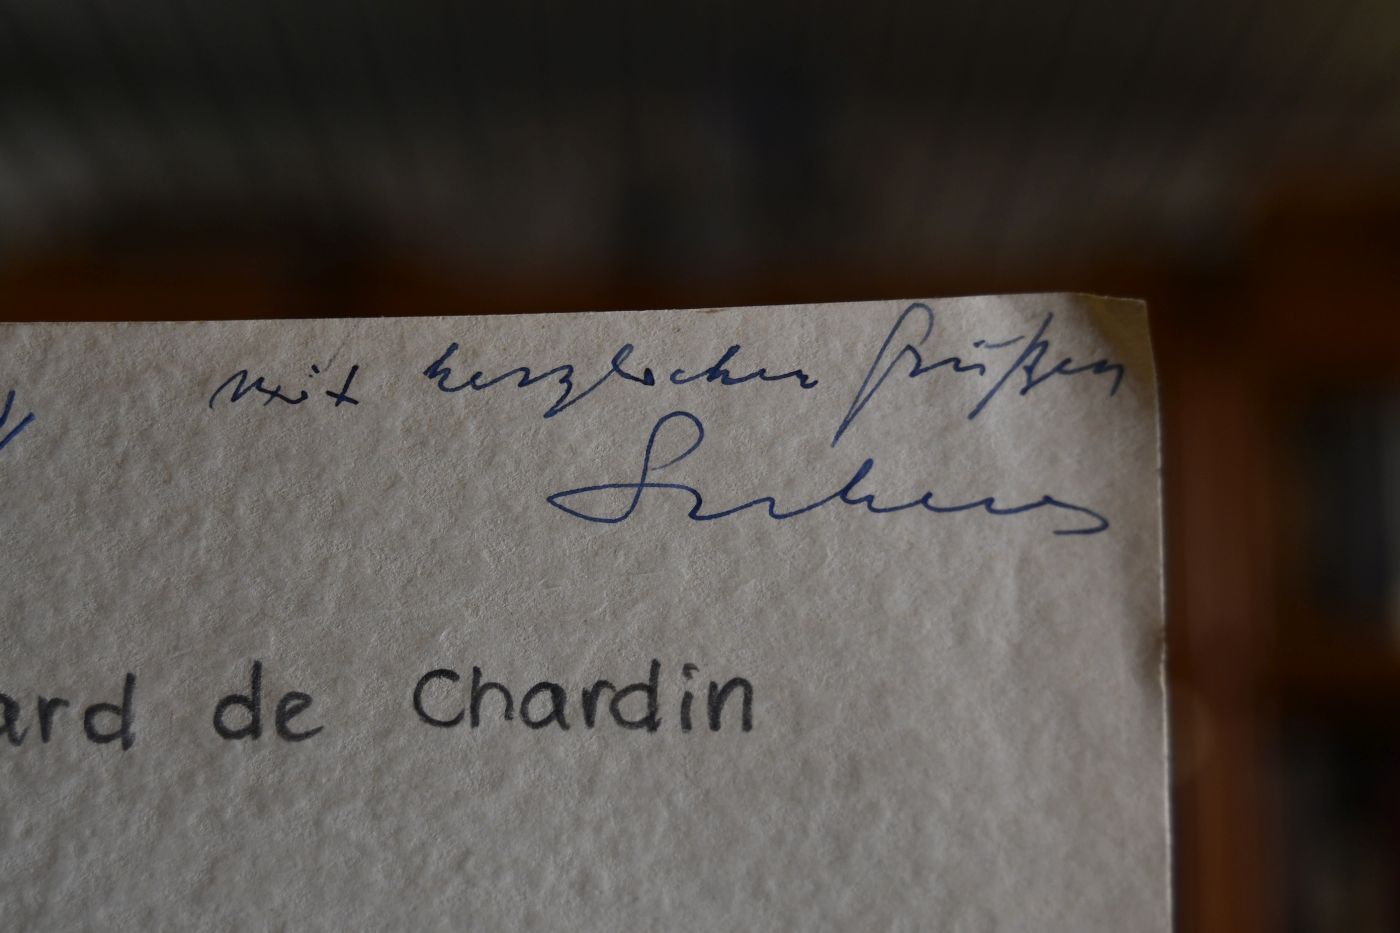 mit herzlichen Grüßen
ard de Chardin